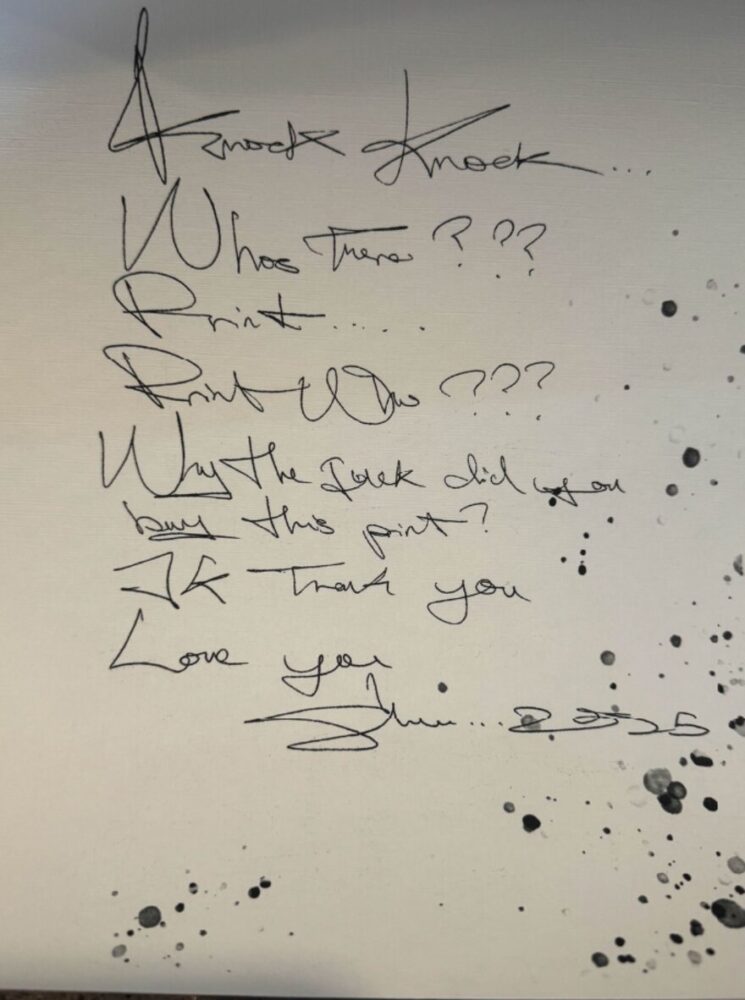 Knock Knock...
Whos There???
Print......
Print Who???
Why the Fuck did you
buy this print?
JK Thank you
Love you
... 2025